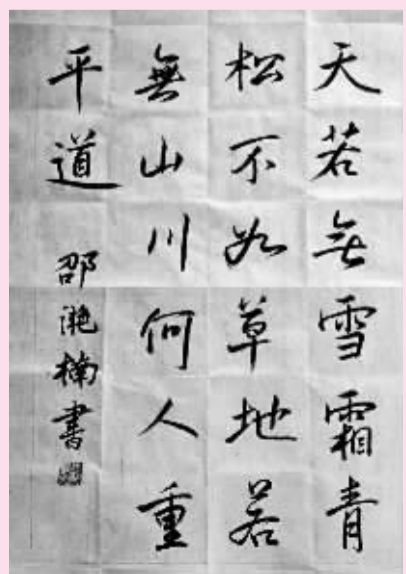 天若無雪霜青
松不如草地若
無山川何人重
平道 邵滟楠書